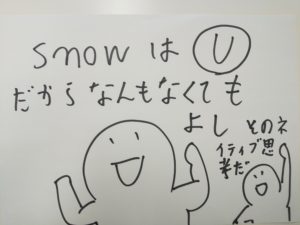 snow は U
だからなんもなくても
よし
そのネ
イティブ思
考だ